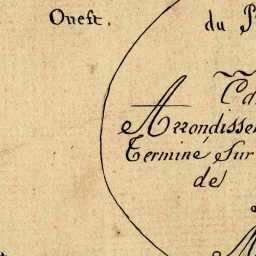 Ouest.
du
Arrondisse
Terminé Sur
de